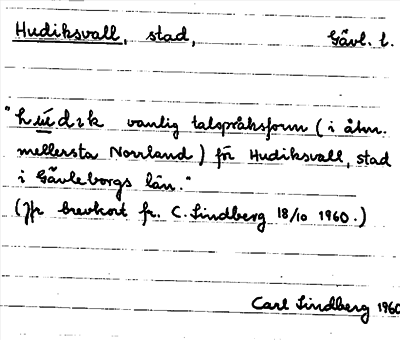 Hudiksvall, stad, Gävl. l.
"húdık vanlig talspråksform (i åtm.
mellersta Norrland) för Hudiksvall, stad
i Gävleborgs län."
(Jfr brevkort fr. C. Lindberg 18/10 1960.)
Carl Lindberg 1960